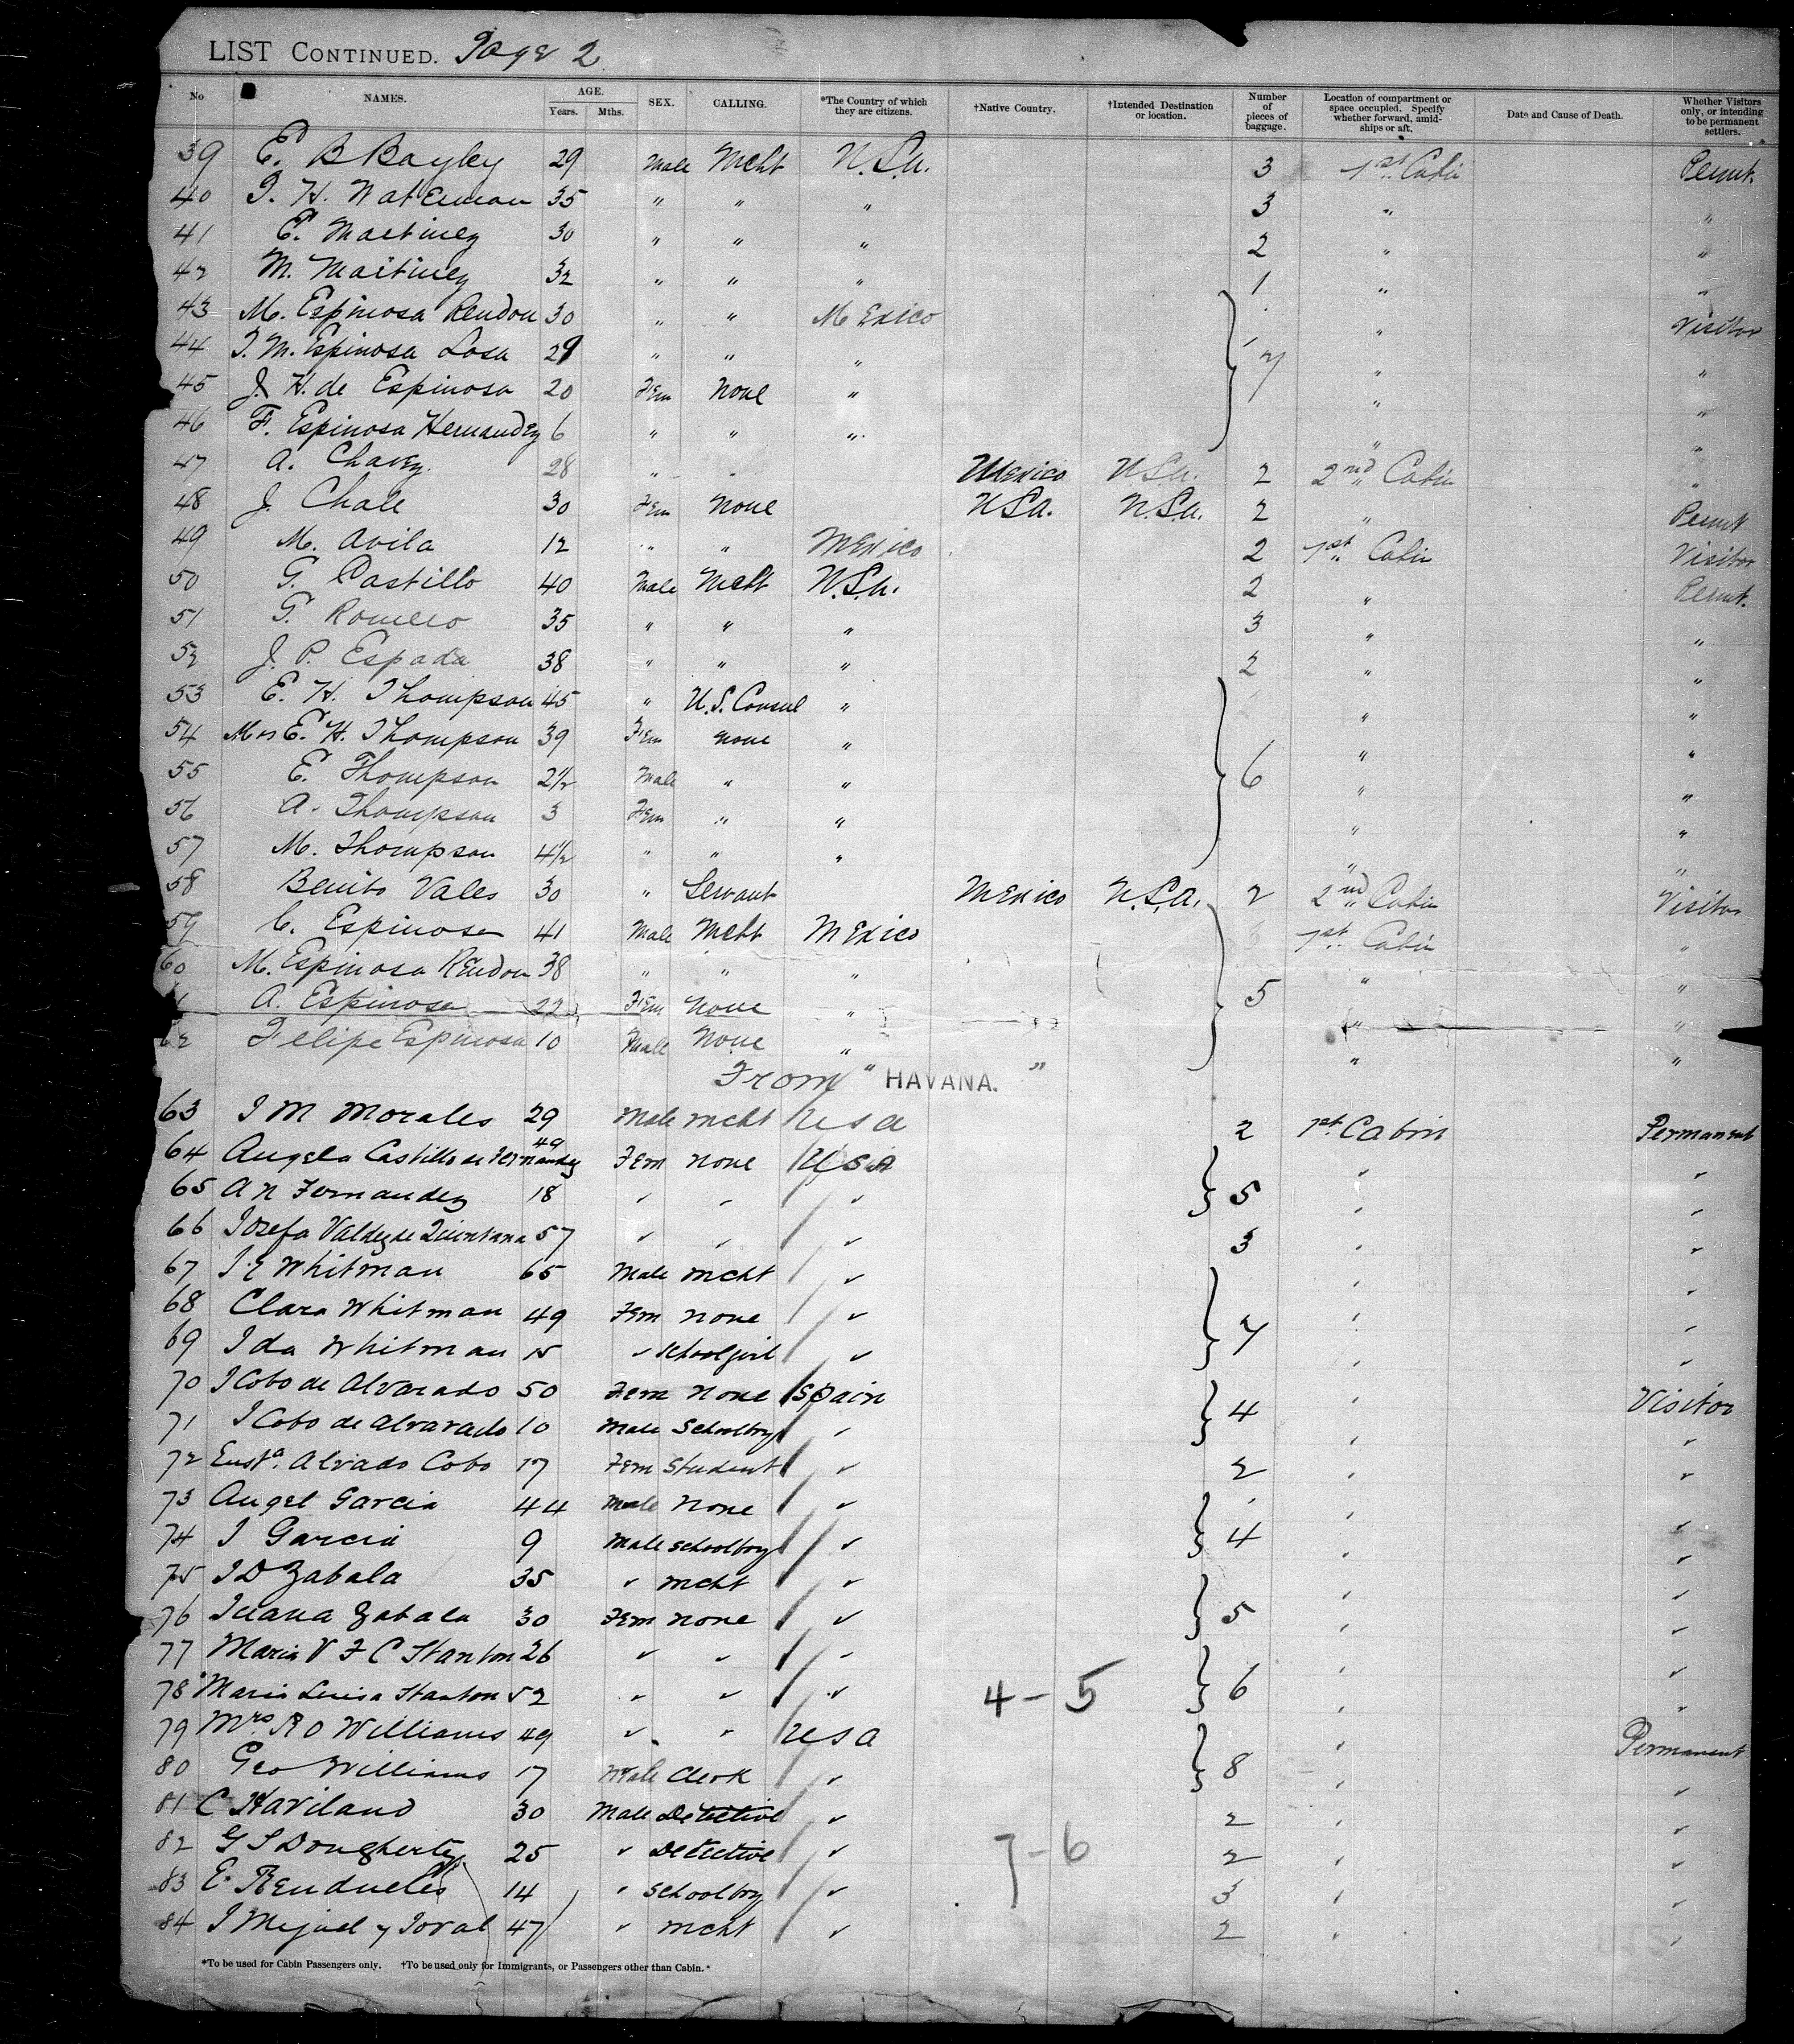 LIST CONTINUED. Page 2
No NAMES. AGE. Years. Mths. SEX. CALLING. *The Country of which they are citizens. †Native Country. †Intended Destination or location. Number of pieces of baggage. Location of compartment or space occupied. Specify whether forward, amidships or aft. Date and Cause of Death. Whether Visitors only, or intending to be permanent settlers.
39 E. B Bayley 29 Male Mcht U.S.a. 3 1st Cabin Permt.
40 J. H. Waterman 35 " " " 3 " "
41 E. Martinez 30 " " " 2 " "
42 M. Martinez 32 " " " 1 " "
43 M. Espinosa Rendon 30 " " Mexico " Visitor
44 J. M. Espinosa Losa 29 " " " 7 " "
45 J. H. de Espinosa 20 Fem None " " "
46 F. Espinosa Hernandez 6 " " " " "
47 A. Chavez 28 " " Mexico U.S.a. 2 2nd Cabin "
48 J. Chale 30 Fem None U.S.a. U.S.a. 2 " Permt
49 M. Avila 12 " " Mexico 2 1st Cabin Visitor
50 G. Castillo 40 Male Mcht U.S.a. 2 " Permt.
51 G. Romero 35 " " " 3 " "
52 J. P. Espada 38 " " " 2 " "
53 E. H. Thompson 45 " U.S. Consul " " "
54 Mrs E. H. Thompson 39 Fem none " " "
55 E. Thompson 2½ Male " " 6 " "
56 A. Thompson 3 Fem " " " "
57 M. Thompson 4½ " " " " "
58 Benito Vales 30 " Servant Mexico U.S.a. 2 2nd Cabin Visitor
59 C. Espinosa 41 Male Mcht Mexico 1st Cabin "
60 M. Espinosa Rendon 38 " " " " "
A. Espinosa 22 Fem None " 5 " "
62 Felipe Espinosa 10 male None " " "
From " HAVANA. "
63 J M Morales 29 Male mcht USA 2 1st Cabin Permanent
64 Angela Castillo de Fernandez 49 Fem none USA " "
65 A N Fernandez 18 " " " 5 " "
66 Josefa Valdez de Quintana 57 " " " 3 " "
67 J. E Whitman 65 Male mcht " " "
68 Clara Whitman 49 Fem none " " "
69 Ida Whitman 15 " schoolgirl " 7 " "
70 J Cobo de Alvarado 50 Fem None Spain " Visitor
71 J Cobo de Alvarado 10 Male Schoolboy " 4 " "
72 Eusta. Alvado Cobo 17 Fem Student " 2 " "
73 Angel Garcia 44 Male None " " "
74 J Garcia 9 Male schoolboy " 4 " "
75 J D Zabala 35 " mcht " " "
76 Juana Zabala 30 Fem none " 5 " "
77 Maria V F C Stanton 26 " " " " "
78 Maria Luisa Stanton 52 " " " 4-5 6 " "
79 Mrs R O Williams 49 " " USA " Permanent
80 Geo Williams 17 Male Clerk " 8 " "
81 C Haviland 30 Male Detective " 2 " "
82 G S Dougherty 25 " Detective " 7-6 2 " "
83 E. Rendueles 14 " schoolboy " 3 " "
84 J Mijuel y Toval 47 " mcht " 2 " "
*To be used for Cabin Passengers only. †To be used only for Immigrants, or Passengers other than Cabin.